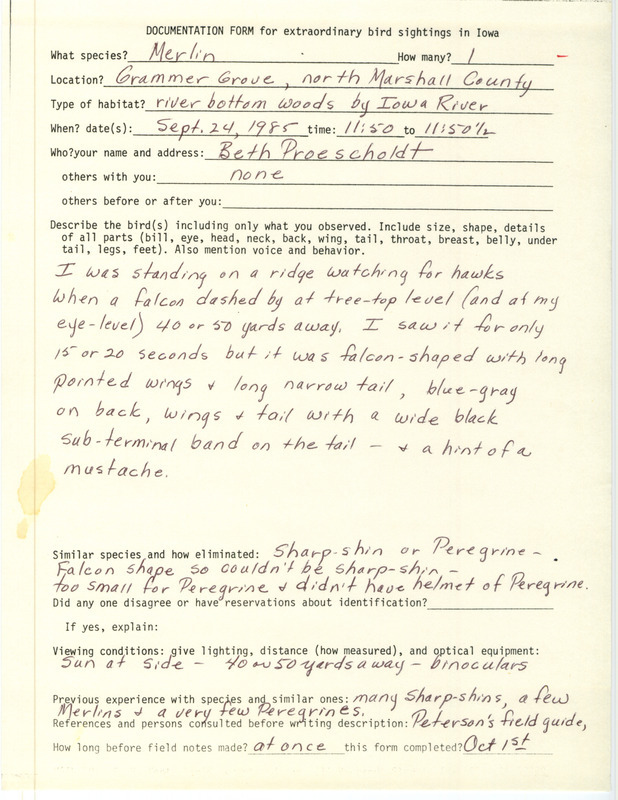 DOCUMENTATION FORM for extraordinary bird sightings in Iowa
What species? Merlin How many? 1
Location? Grammer Grove, north Marshall County
Type of habitat? river bottom woods by Iowa River
When? date(s): Sept. 24, 1985 time: 11:50 to 11:50 1/2
Who?your name and address: Beth Proescholdt
others with you: none
others before or after you:
Describe the bird(s) including only what you observed. Include size, shape, details
of all parts (bill, eye, head, neck, back, wing, tail, throat, breast, belly, under
tail, legs, feet). Also mention voice and behavior.
I was standing on a ridge watching for hawks
when a falcon dashed by at tree-top level (and at my
eye-level) 40 or 50 yards away. I saw it for only
15 or 20 seconds but it was falcon-shaped with long
pointed wings & long narrow tail, blue-gray
on back, wings & tail with a wide black
sub-terminal band on the tail - & a hint of a
mustache.
Similar species and how eliminated: Sharp-shin or Peregrine -
Falcon shape so couldn't be sharp-shin -
too small for Peregrine & didn't have helmet of Peregrine.
Did any one disagree or have reservations about identification?
If yes, explain:
Viewing conditions: give lighting, distance (how measured), and optical equipment:
Sun at side - 40 or 50 yards away - binoculars
Previous experience with species and similar ones: many Sharp-shins, a few
Merlins & a very few Peregrines.
References and persons consulted before writing description: Peterson's field guide,
How long before field notes made? at once this form completed? Oct 1st